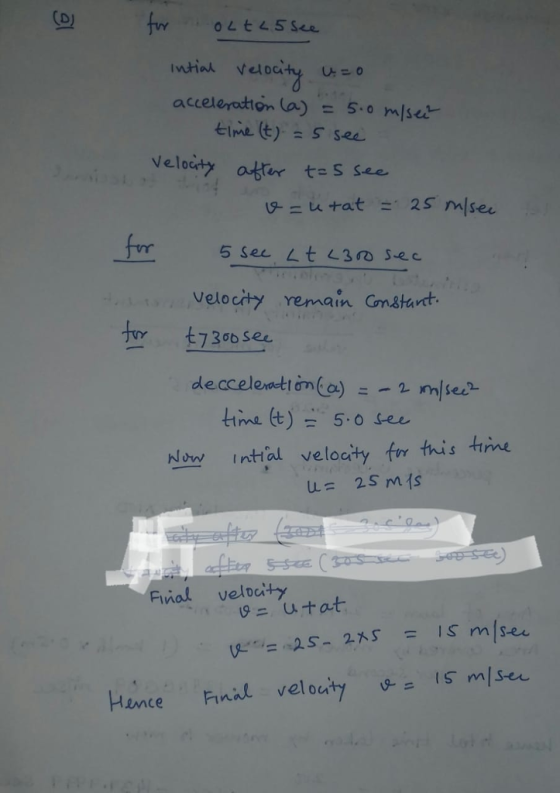 (D) for 0<t<5 sec
intial velocity u=0
acceleration (a) = 5.0 m/sec²
time (t) = 5 sec
Velocity after t=5 sec
v = u+at = 25 m/sec
for 5 sec <t <300 sec
velocity remain constant.
for t>300sec
decceleration (a) = -2 m/sec²
time (t) = 5.0 sec
Now intial velocity for this time
u= 25 m/s
after
after 5 sec (305 sec 300 sec)
Final velocity
v= u+at
v = 25-2×5 = 15 m/sec
Hence Final velocity v= 15 m/sec